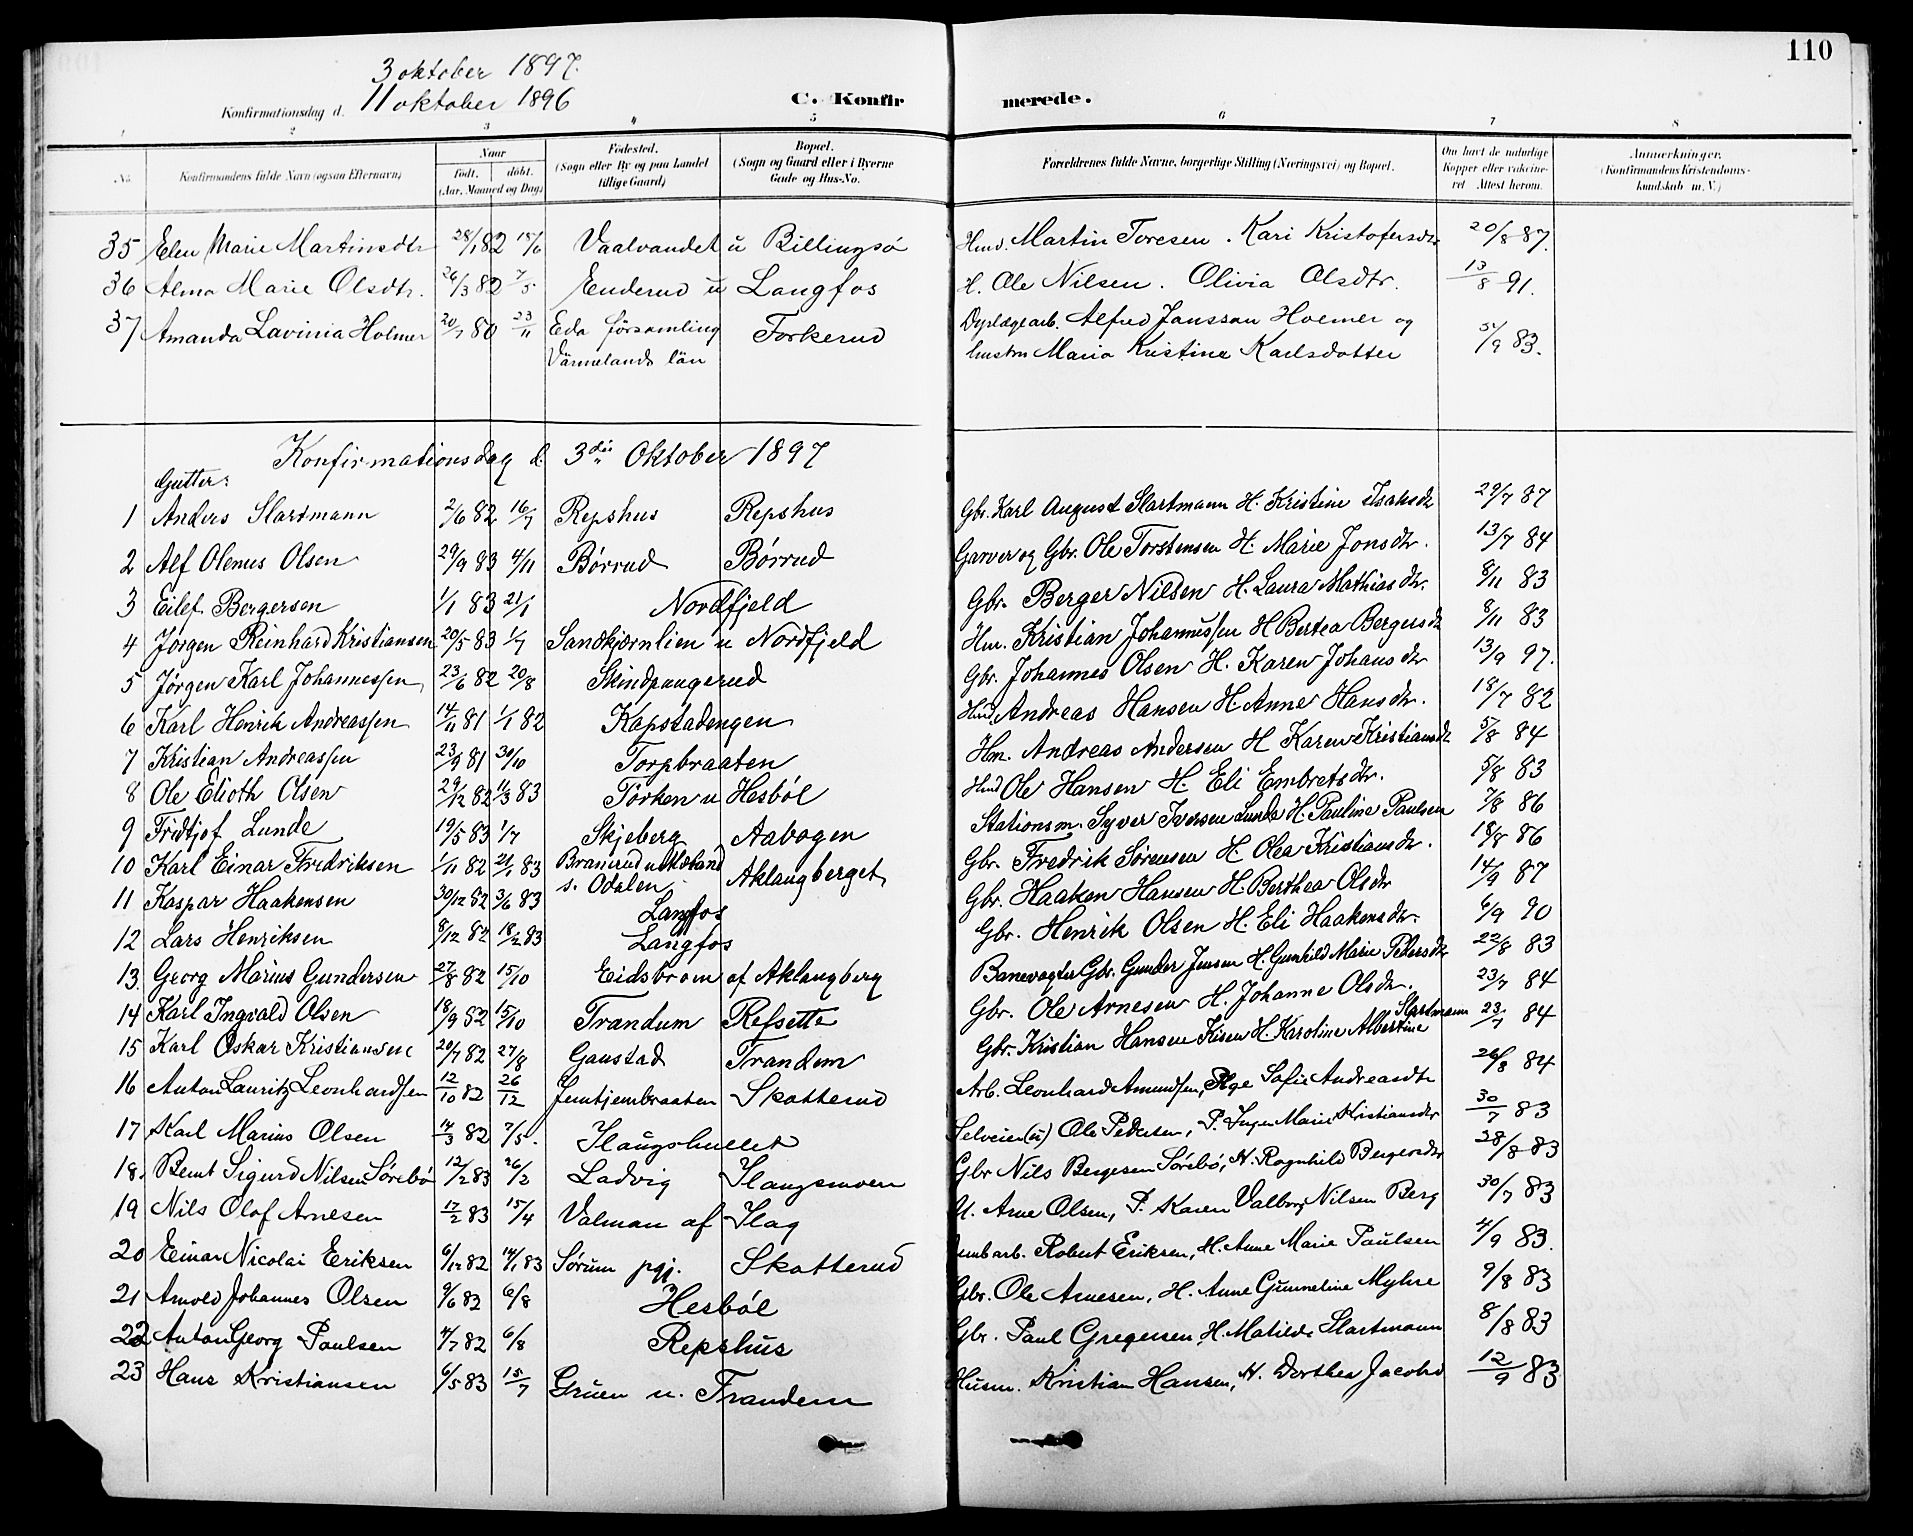 110
3 oktober 1897.
Konfirmationsdag d. 11 oktober 1896
C. Konfirmerede.
1 2 3 4 5 6 7 8
No. Konfirmandens fulde Navn (ogsaa Efternavn)
Naar født. døbt. (Aar, Maaned og Dag)
Fødested. (Sogn eller By og paa Landet tillige Gaard)
Bopæl. (Sogn og Gaard eller i Byerne Gade og Hus-No.
Forældrenes fulde Navne, borgerlige Stilling (Næringsvei) og Bopæl.
Om havt de naturlige Kopper eller vakcineret Attest herom.
Anmærkninger. (Konfirmandens Kristendomskundskab m. V.)
35 Elen Marie Martinsdtr 28/1 82 18/6 Vaalvandet u Billingsø Hmd. Martin Toresen. Kari Kristofersdtr 20/8 87.
36 Alma Marie Olsdtr. 26/3 82 7/5 Enderud u Langfos H. Ole Nilsen. Olivia Olsdtr. 13/8 91.
37 Amanda Lavinia Holmer 20/7 80 23/11 Eda församling Torkerud Alfred Jansson Holmer og
Värmelands län hustru Maria Kristina Karlsdotter /9 83.
Konfirmationsdag d. 3die Oktober 1897
Gutter:
1 Anders Slartmann 2/6 82 16/7 Repshus Repshus Gbr. Karl August Slartmann H. Kristine Isaksdtr 29/7 87
2 Alf Olenus Olsen 29/9 83 4/11 Børrud Børrud Garver og Gbr. Ole Torstensen H. Marie Jonsdtr. 13/7 84
3 Eilef Bergersen 1/1 83 21/1 Nordfjeld Gbr. Berger Nilsen H. Laura Mathiasdtr. 8/11 83
4 Jørgen Reinhard Kristiansen 20/5 83 1/7 Sandkjærnlien u Nordfjeld Hm. Kristian Johannessen H Bertea Bergersdtr 8/11 83
5 Jørgen Karl Johannessen 23/6 82 20/8 Skindpungerud Gbr. Johannes Olsen H. Karen Johansdtr 13/9 97.
6 Karl Henrik Andreassen 14/11 81 1/1 82 Kapstadengen Hmd. Andreas Hansen H. Anne Hansdtr. 18/7 82
7 Kristian Andreassen 23/9 81 30/10 Torpbraaten Hm. Andreas Andersen H Karen Kristiansdtr 5/8 84
8 Ole Elioth Olsen 29/12 82 11/3 83 Tørken u Hesbøl Hmd Ole Hansen H. Eli Embretsdtr. 5/8 83
9 Fridtjof Lunde 19/5 83 1/7 Skjeberg Aabogen Stationsm. Syver Iversen Lunde H. Pauline Paulsen 7/8 86
10 Karl Einar Fredriksen 1/11 82 21/1 83 s. Odalen Aklangberget Gbr. Fredrik Sørensen H. Olea Kristiansdtr. 18/8 86
11 Kaspar Haakensen 30/12 82 3/6 83 Langfos Gbr. Haaken Hansen H. Berthea Olsdtr 14/9 87
12 Lars Henriksen 8/12 82 18/2 83 Langfos Gbr. Henrik Olsen H. Eli Haakensdtr. 6/9 90
13. Georg Marius Gundersen 27/8 82 15/10 Eidsbrom af Aklangberg Banevogter Gbr. Gunder Jensen H. Gunhild Marie Pedersdtr 22/8 83
14 Karl Ingvald Olsen 18/9 82 15/10 Trandum Refsette Gbr. Ole Arnesen H. Johanne Olsdtr. 23/7 84
15 Karl Oskar Kristiansen 20/7 82 27/8 Gaustad Trandem Gbr. Kristian Hansen H. Karoline Albertine Slartmann 23/7 84
16 Anton Lauritz Leonhardsen 12/10 82 26/12 Jemtjernbraaten Skotterud Arb. Leonhard Amundsen, Pige Sofie Andreasdtr 26/8 84
17 Karl Marius Olsen 14/3 82 7/5. Haugshullet Selveier(u) Ole Pedersen, P. Inger Marie Kristiansdtr 30/7 83
18. Bernt Sigurd Nilsen Sørebø 12/2 83 26/2 Ladvig Haugsmoen Gbr Nils Bergesen Sørebø, H. Ragnhild Bergersdtr 28/8 83
19 Nils Olof Arnesen 17/2 83 15/4 Valman af Hag U. Arne Olsen, P. Karen Valborg Nilsen Berg 30/7 83
20 Einar Nicolai Eriksen 6/12 82 14/1 83 Sørum pgj. Skotterud Robert Eriksen, H. Anne Marie Paulsen 4/9 83.
21 Arnold Johannes Olsen 9/6 83 6/8 Hesbøl Gbr. Ole Arnesen, H. Anne Gunneline Myhre 9/8 83
22 Anton Georg Paulsen 4/7 82 6/8 Repshus Gbr. Paul Gregersen, H. Matilde Slartmann 8/8 83
23 Hans Kristiansen 6/5 83 15/7 Gruen u. Trandem Husm. Kristian Hansen, H. Dorthea Jacobsd 12/9 83